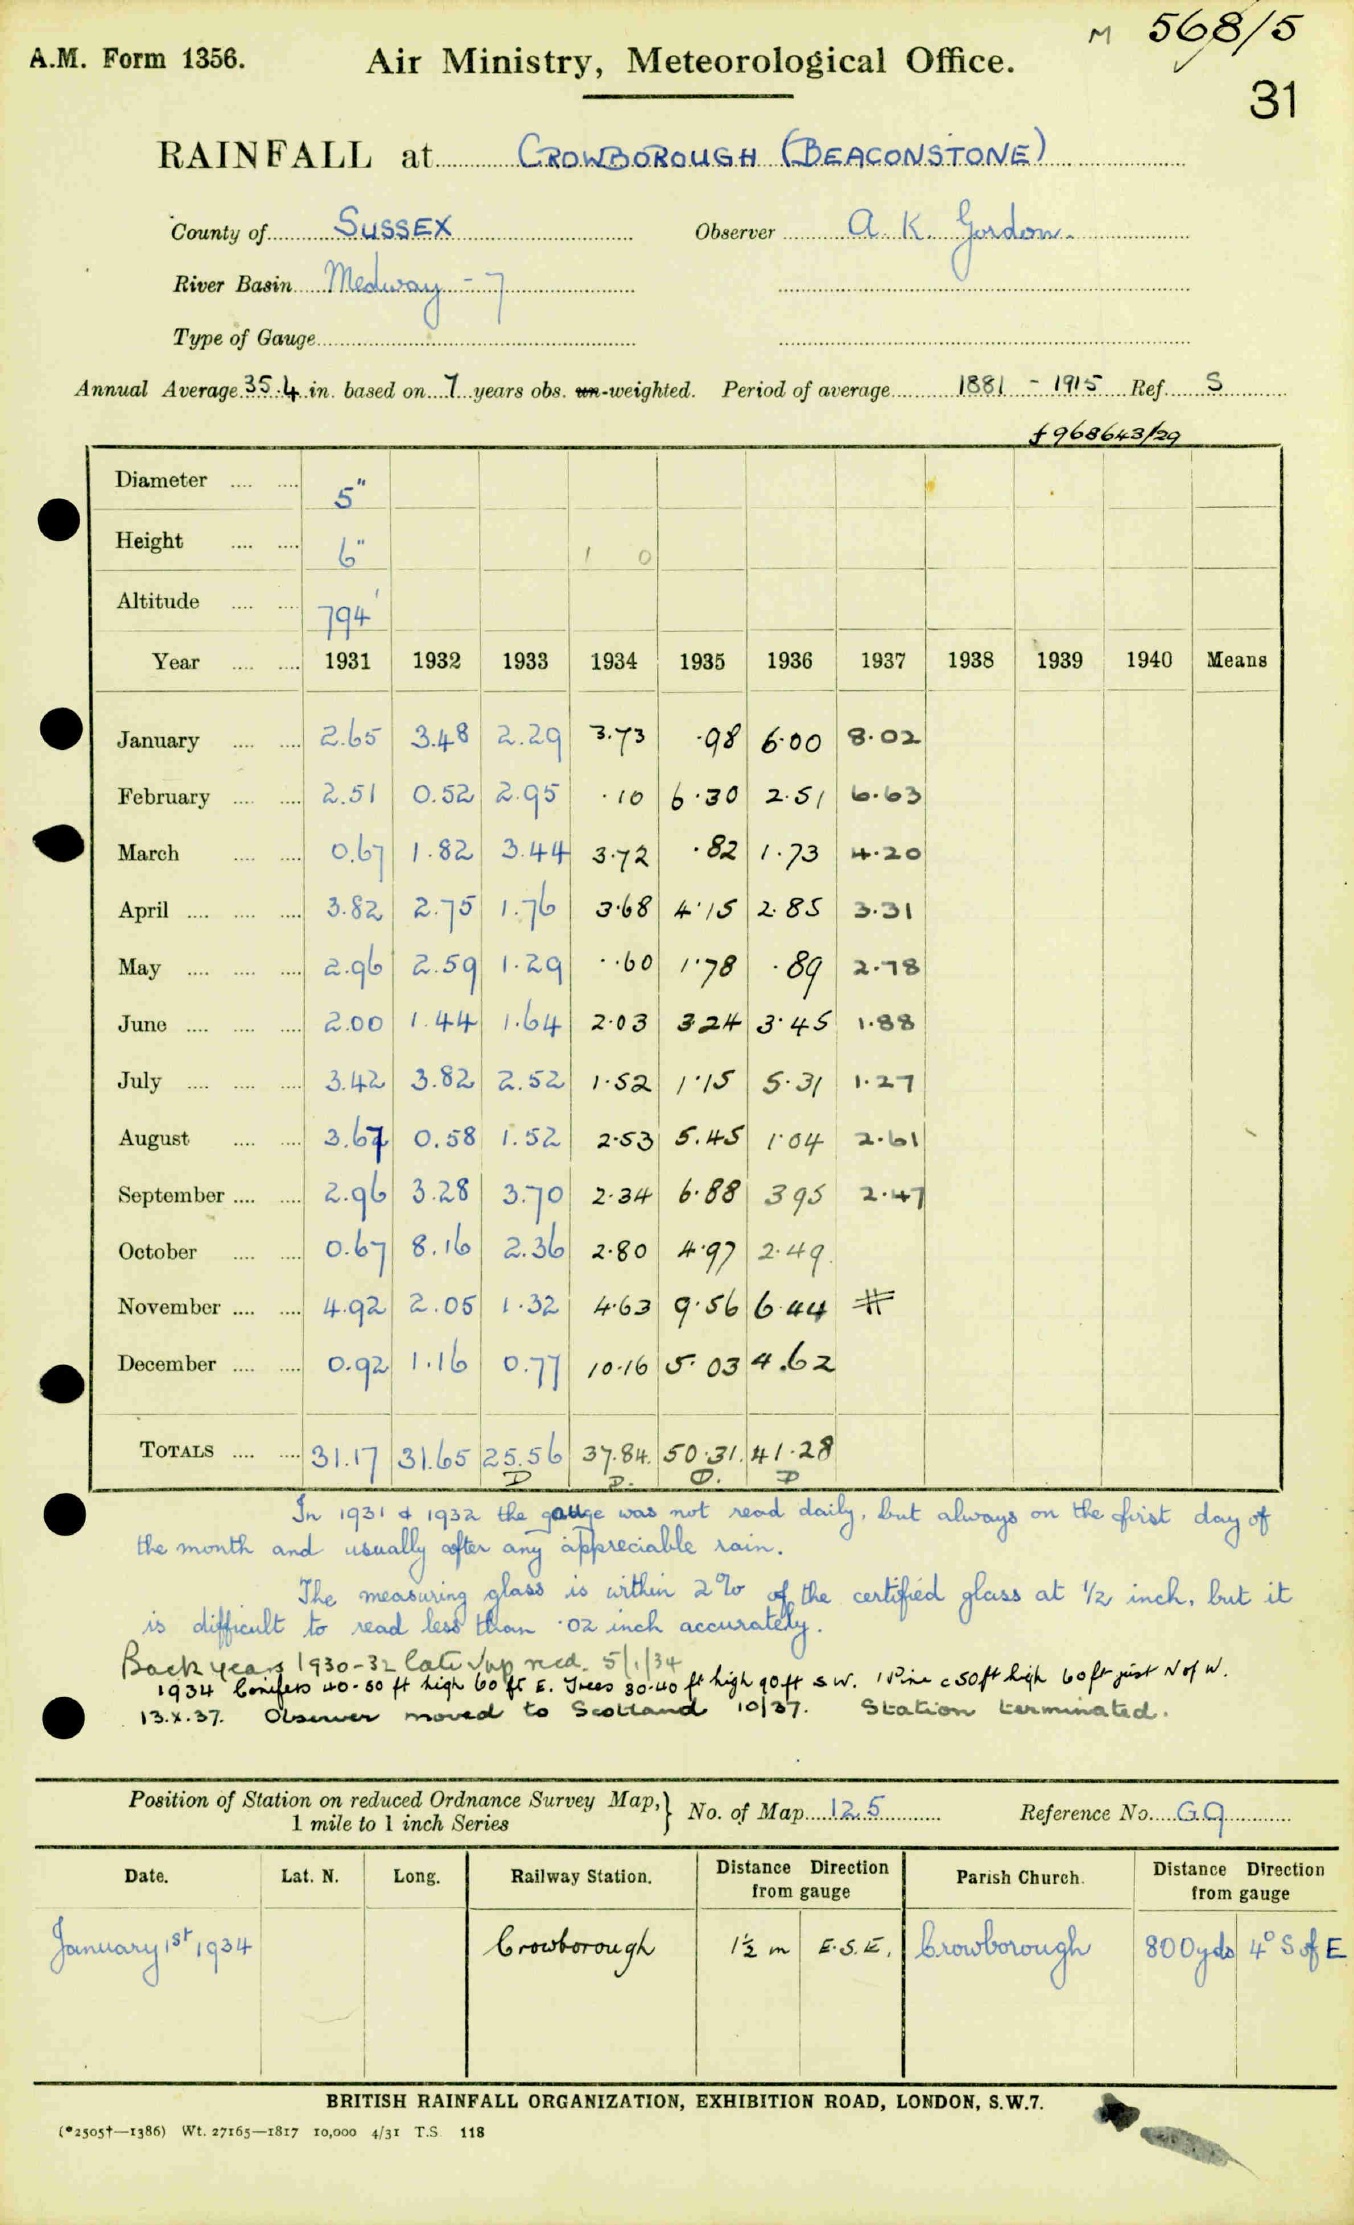 M 568/5
A.M. Form 1356. Air Ministry, Meteorological Office.
31
RAINFALL at CROWBOROUGH (BEACONSTONE)
County of SUSSEX Observer A. K. Gordon.
River Basin Medway - 7
Type of Gauge
Annual Average 35.4 in. based on 7 years obs. un-weighted. Period of average 1881 - 1915 Ref. S
f 968643/29
Diameter .... .... 5"
Height .... .... 6" 1 0
Altitude .... .... 794'
Year .... .... 1931 1932 1933 1934 1935 1936 1937 1938 1939 1940 Means
January .... .... 2.65 3.48 2.29 3.73 .98 6.00 8.02
February .... .... 2.51 0.52 2.95 .10 6.30 2.51 6.63
March .... .... 0.67 1.82 3.44 3.72 .82 1.73 4.20
April .... .... .... 3.82 2.75 1.76 3.68 4.15 2.85 3.31
May .... .... .... 2.96 2.59 1.29 .60 1.78 .89 2.78
June .... .... .... 2.00 1.44 1.64 2.03 3.24 3.45 1.88
July .... .... .... 3.42 3.82 2.52 1.52 1.15 5.31 1.27
August .... .... 3.67 0.58 1.52 2.53 5.45 1.04 2.61
September .... .... 2.96 3.28 3.70 2.34 6.88 3 95 2.47
October .... .... 0.67 8.16 2.36 2.80 4.97 2.49
November .... .... 4.92 2.05 1.32 4.63 9.56 6.44 #
December .... .... 0.92 1.16 0.77 10.16 5.03 4.62
TOTALS .... .... 31.17 31.65 25.56 37.84. 50.31. 41.28
D D. D. D
In 1931 & 1932 the gauge was not read daily, but always on the first day of
the month and usually after any appreciable rain.
The measuring glass is within 2% of the certified glass at 1/2 inch, but it
is difficult to read less than .02 inch accurately.
Back years 1930-32 late recd. 5/1/34
1934 Conifers 40-50 ft high 60 ft E. Trees 30-40 ft high 90ft S W. 1 Pine c 50ft high 60ft just N of W.
13.X.37. Observer moved to Scotland 10/37. Station terminated.
Position of Station on reduced Ordnance Survey Map,} No. of Map 125 Reference No. G9
1 mile to 1 inch Series
Date. Lat. N. Long. Railway Station. Distance Direction from gauge Parish Church. Distance Direction from gauge
January 1st 1934 Crowborough 1½ m E.S.E. Crowborough 800yds 4° S of E
BRITISH RAINFALL ORGANIZATION, EXHIBITION ROAD, LONDON, S.W.7.
(*2505†—1386) Wt. 27165—1817 10,000 4/31 T.S. 118